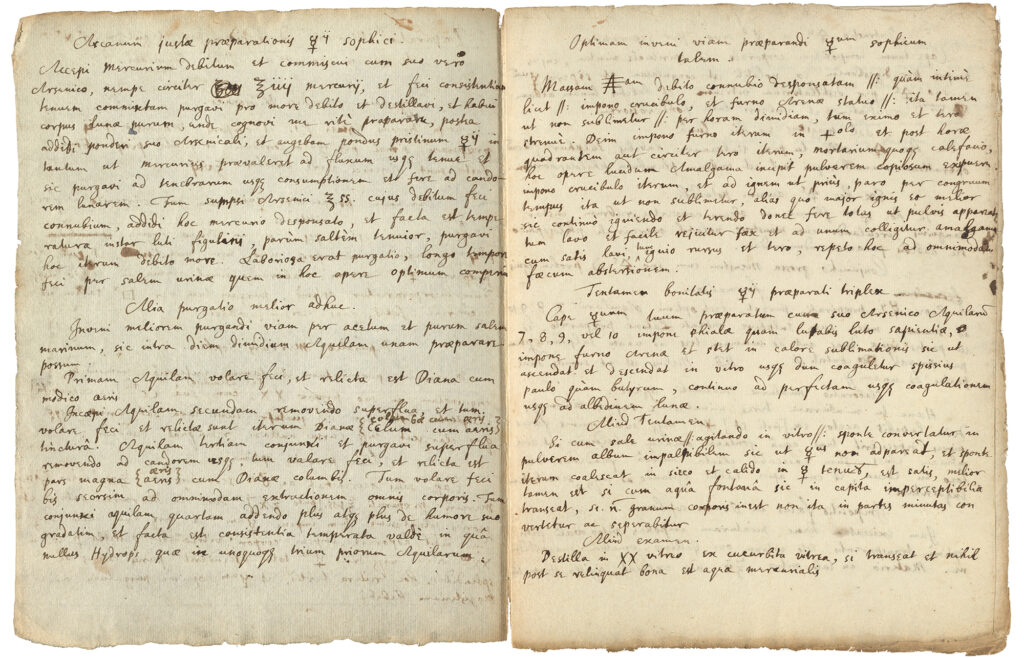 Arcanum justæ præparationis ☿ij sophici.
Accepi mercurium debitum et commiscui cum suo vero
Arsenico, nempe circiter ʒiiij mercurij, et feci consistentiam
tenuem commixtam purgavi pro more debito et destillavi, et habui
corpus lunæ purum, unde cognovi me ritè præparasse, postea
addidi ponderi suo Arsenicali, et augebam pondus pristinum ☿ij in
tantum ut mercurius prævaleret ad fluxum usq; tenue et
sic purgavi ad tenebrarum usq; consumptionem et fere ad cando-
rem lunarem. Tum sumpsi Arsenici ʒss. cujus debitum feci
connubium, addidi hoc mercurio desponsato, et facta est tempe
ratura instar luti figularis, parùm saltèm tenuior, purgavi
hoc iterum debito more. Laboriosa erat purgatio, longo tempore
feci per salem urinæ quem in hoc opere optimum comperi
Alia purgatio melior adhuc.
Inveni meliorem purgandi viam per acetum et purum salem
marinum, sic intra diem dimidium Aquilam unam præparare
possum
Primam Aquilam volare feci, et relicta est Diana cum
modico æris
Incepi Aquilam secundam removendo superflua, et tum
volare feci et relictæ sunt iterum Dianæ {columbæ cum æris} {cum æris}
tinctura Aquilam tertiam conjunxi et purgavi superflua
removendo ad candorem usq; tum volare feci, et relicta est
pars magna {æris} {aeris} cum Dianæ columbis. Tum volare feci
bis seorsim ad omnimodam extractionem omnis corporis. Tum
conjunxi aquilam quartam addendo plus atq; plus de humore suo
gradatim, et facta est consistentia temperata valdè in quâ
nullus Hydrops quæ in unoquoq; trium priorum Aquilarum.
Optimam inveni viam præparandi ☿um sophicum
talem.
Massam am debito connubio desponsatam //: quam intime
licet //: impono crucibulo, et furno Arenæ statuo //: ita tamen
ut non sublimetur //: per horam dimidiam, tum eximo et tero
strenuè. Dein impono furno iterum in +olo et post horæ
quadrantem aut circiter tero iterum, mortarium quoq; calefacio,
hoc opere lucidum Amalgama incepit pulverem copiosum expuere,
impono crucibulo iterum, et ad ignem ut prius, paro per congruum
tempus ita ut non sublimetur, alias quo major ignis eo melior
sic continuo igniendo et terendo donec fere totus ut pulvis apparat
tum lavo et facile rejicitur fæx et ad unum colligitur amalgama
cum satis lavi, tunc ignio rursus et tero, repeto hoc ad omnimodam
fæcum abstersionem.
Tentamen bonitatis ☿ij præparati triplex
Cape ☿um tuum præparatum cum suo Arsenico Aquilarum
7, 8, 9, vel 10 impone phialæ quam lutabis luto sapientiæ,
impone furno Arenæ et stet in calore sublimationis sic ut
ascendat et descendat in vitro usq; dum coaguletur spissius
paulo quàm butyrum, continuo ad perfectam usq; coagulationem
usq; ad albedinem lunæ.
Aliud Tentamen.
Si cum sale urinæ //: agitando in vitro //: sponte convertatur in
pulverem album impalpabilem sic ut ☿ius non adpareat, et sponte
iterum coalescat in sicco et calido in ☿ tenuem, est satis, melior
tamen est si cum aquâ fontanâ sic in capita imperceptibilia
transeat, se. ñ granum corporis inest non ita in partes minutas con
vertetur ac seperabitur
Aliud examen.
Destilla in XX vitreo ex cucurbita vitrea, si transeat et nihil
post se relinquat bona est aqua mercurialis